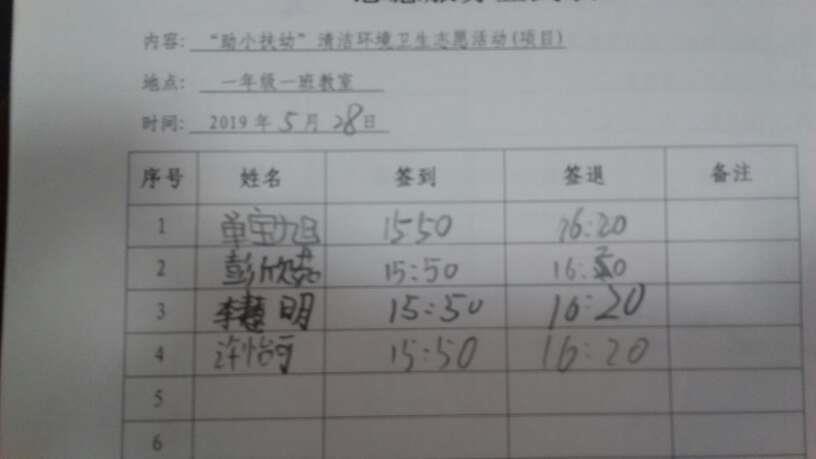 内容: “助小扶幼”清洁环境卫生志愿活动(项目)
地点: 一年级一班教室
时间: 2019 年 5 月 28 日
序号 姓名 签到 签退 备注
1 单宝旭 1550 16:20
2 彭欣 15:50 16:20
3 李 明 15:50 16:20
4 许怡可 15:50 16:20
5
6